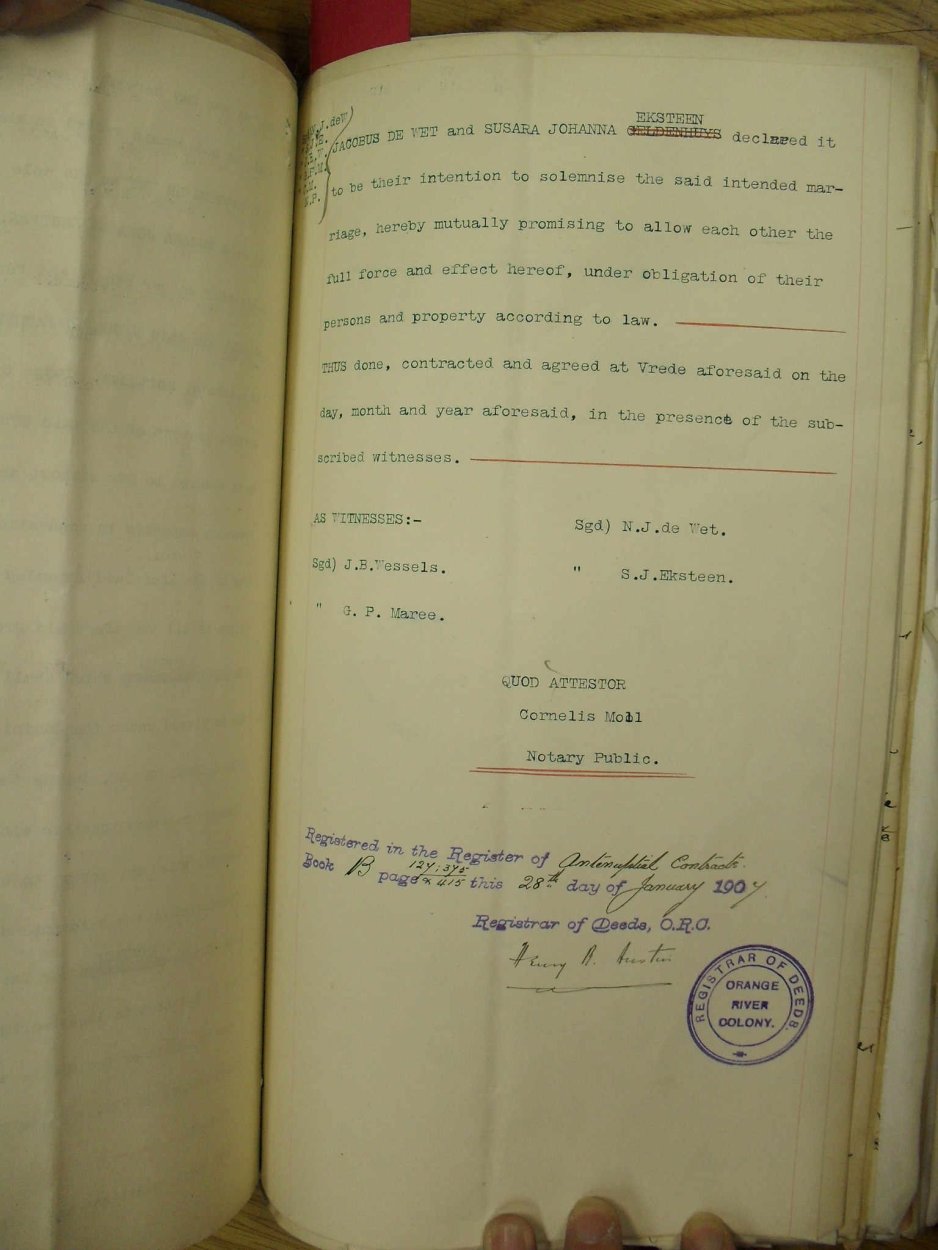 JACOBUS DE WET and SUSARA JOHANNA EKSTEEN GELDENHUYS declared it
to be their intention to solemnise the said intended mar-
riage, hereby mutually promising to allow each other the
full force and effect hereof, under obligation of their
persons and property according to law.
THUS done, contracted and agreed at Vrede aforesaid on the
day, month and year aforesaid, in the presence of the sub-
scribed witnesses.
AS WITNESSES:-
Sgd) N.J.de Wet.
Sgd) J.B.Wessels.
" S.J.Eksteen.
" G. P. Maree.
QUOD ATTESTOR
Cornelis Moll
Notary Public.
Registered in the Register of Antenuptial Contracts.
Book B page 127; 395 & 415 this 28th day of January 1907.
Registrar of Deeds, O.R.C.
Henry B. Austin
REGISTRAR OF DEEDS.
ORANGE
RIVER
COLONY.